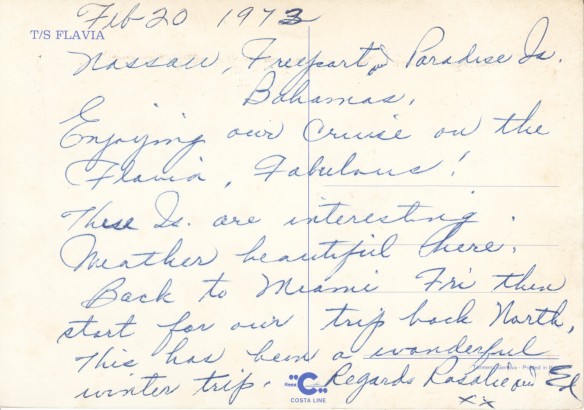 Feb 20 1973
T/S FLAVIA
Nassau, Freeport & Paradise Is.
Bahamas.
Enjoying our Cruise on the
Flavia, Fabulous!
These Is. are interesting.
Weather beautiful here.
Back to Miami Fri then
start for our trip back North,
This has been a wonderful
winter trip. Regards Rosalie and Ed
xx
C
COSTA LINE